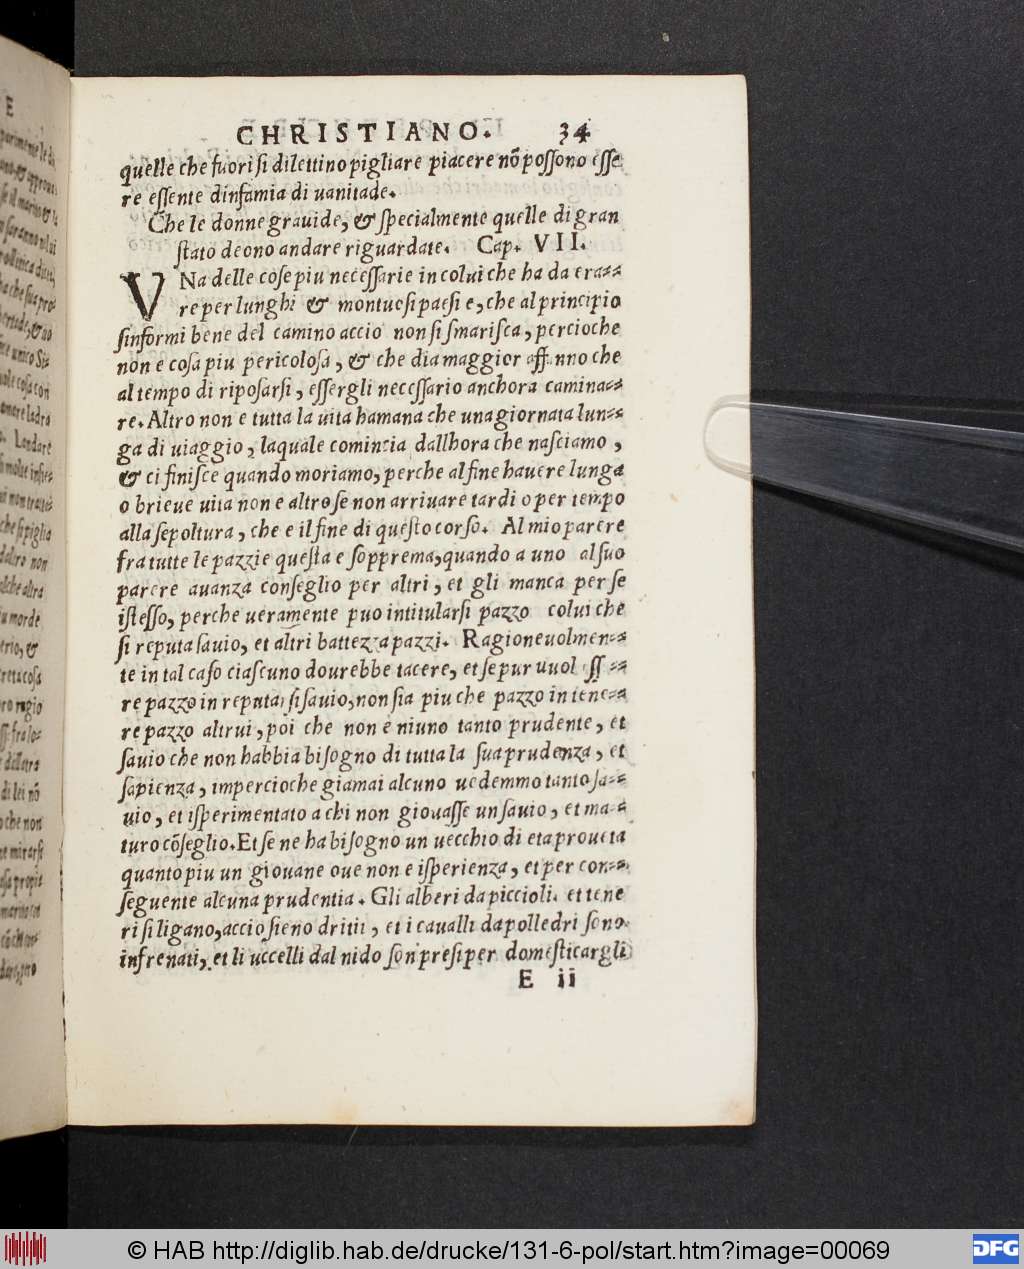 CHRISTIANO. 34
quelle che fuori si dilettino pigliare piacere nõ possono esse
re essente dinfamia di uanitade.
Che le donne grauide, & specialmente quelle di gran
stato deono andare riguardate. Cap. VII.
VNa delle cose piu necessarie in colui che ha da erra=
re per lunghi & montuosi paesi e, che al principio
sinformi bene del camino accio non si smarisca, percioche
non e cosa piu pericolosa, & che dia maggior affanno che
al tempo di riposarsi, essergli necessario anchora camina=
re. Altro non e tutta la uita hamana che una giornata lun=
ga di uiaggio, laquale comincia dallhora che nasciamo,
& ci finisce quando moriamo, perche al fine hauere lunga
o brieue uita non e altro se non arriuare tardi o per tempo
alla sepoltura, che e il fine di questo corso. Al mio parere
fra tutte le pazzie questa e sopprema, quando a uno al suo
parere auanza conseglio per altri, et gli manca per se
istesso, perche ueramente puo intitularsi pazzo colui che
si reputa sauio, et altri battezza pazzi. Ragioneuolmen=
te in tal caso ciascuno dourebbe tacere, et se pur uuol ess=
re pazzo in reputarsi sauio, non sia piu che pazzo in tene=
re pazzo altrui, poi che non e niuno tanto prudente, et
sauio che non habbia bisogno di tutta la sua prudenza, et
sapienza, impercioche giamai alcuno uedemmo tanto sa=
uio, et isperimentato a chi non giouasse un sauio, et ma=
turo cõseglio. Et se ne ha bisogno un uecchio di eta proueta
quanto piu un giouane oue non e isperienza, et per con=
seguente alcuna prudentia. Gli alberi da piccioli. et tene
ri si ligano, accio sieno dritti, et i caualli da polledri sono
infrenati, et li uccelli dal nido son presi per domesticargli
E ii
E
© HAB http://diglib.hab.de/drucke/131-6-pol/start.htm?image=00069
DFG